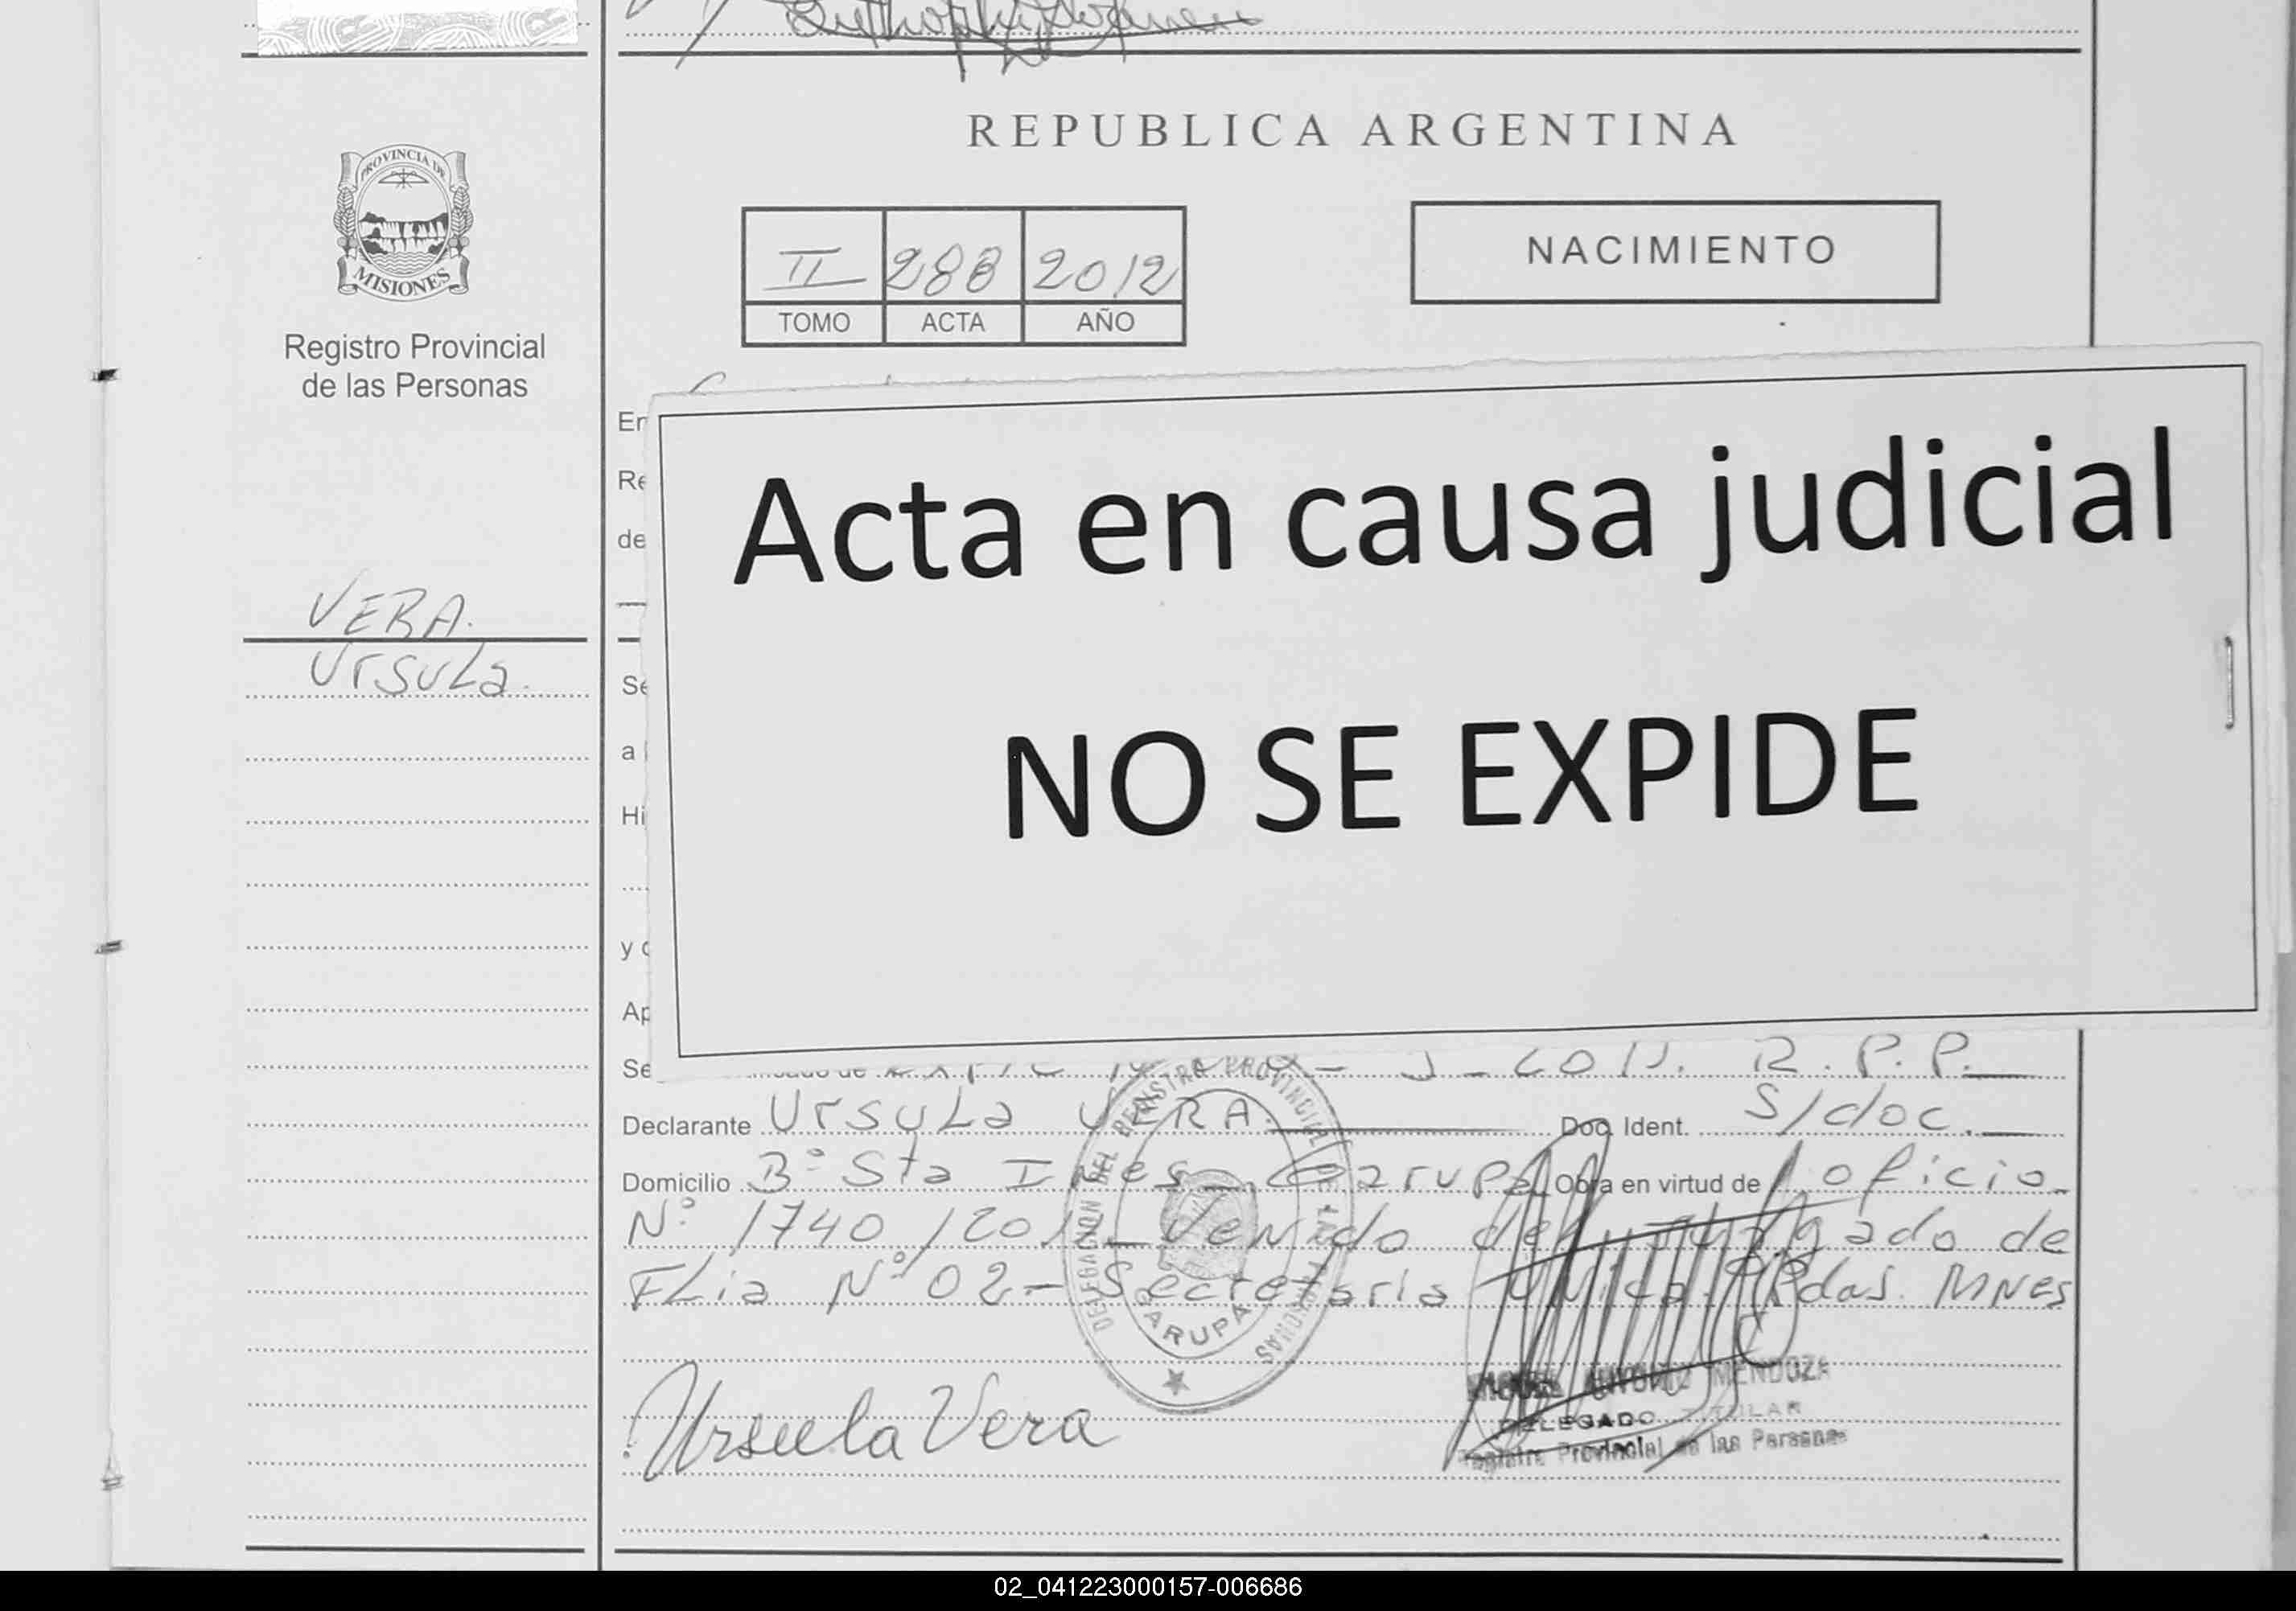 REPUBLICA ARGENTINA
PROVINCIA DE
MISIONES
Registro Provincial
de las Personas
II 288 2012
TOMO ACTA AÑO
NACIMIENTO
VERA.
Ursula.
En
Re
de
Se
a
Hi
y
Ap
Se
Acta en causa judicial
NO SE EXPIDE
R.P.P.
Declarante Ursula VERA. Doc. Ident. S/doc.
Domicilio Bº Sta Ines - Garupá Obra en virtud de oficio
Nº 1740/201 - Venido del Juzgado de
FLia Nº 02 - Secretaría Unica Pdas. MNes
DELEGACION DEL REGISTRO PROVINCIAL DE LAS PERSONAS
GARUPA
Ursula Vera
ANTONIO MENDOZA
DELEGADO TITULAR
Registro Provincial de las Personas
02_041223000157-006686